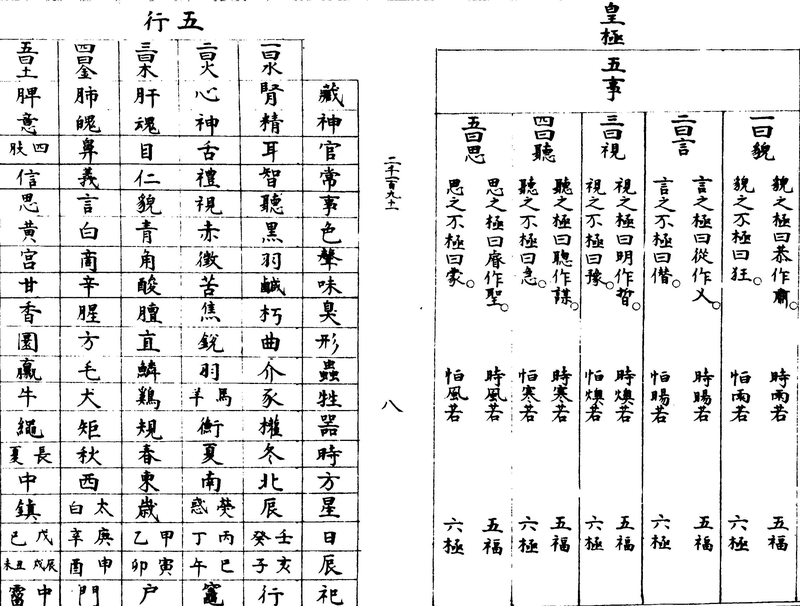 皇極
五事
一曰貌
貌之極曰恭作肅。
貌之不極曰狂。
時雨若
怕雨若
五福
六極
二曰言
言之極曰從作乂。
言之不極曰僭。
時暘若
怕暘若
五福
六極
三曰視
視之極曰明作哲。
視之不極曰豫。
時燠若
怕燠若
五福
六極
四曰聽
聽之極曰聰作謀。
聽之不極曰急。
時寒若
怕寒若
五福
六極
五曰思
思之極曰睿作聖。
思之不極曰蒙。
時風若
怕風若
五福
六極
八
五行
藏神官常事色聲味臭形蟲牲器時方星日辰祀
一曰水
腎精耳智聽黑羽鹹朽曲介豕權冬北辰壬癸亥子行
二曰火
心神舌禮視赤徵苦焦銳羽馬羊衡夏南熒惑丙丁巳午竈
三曰木
肝魂目仁貌青角酸膻直鱗雞規春東歲甲乙寅卯户
四曰金
肺魄鼻義言白商辛腥方毛犬矩秋西太白庚辛申酉門
五曰土
脾意四肢信思黃宮甘香圜臝牛繩長夏中鎮戊己辰戌丑未中霤